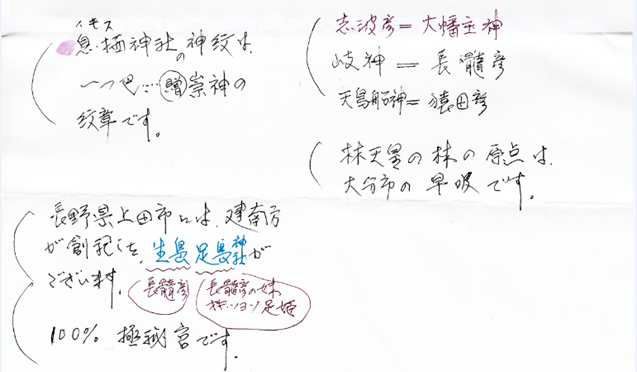 イキス
息栖神社の神紋は
一つ巴…贈崇神の
紋章です。
志波彦＝大幡主神
岐神＝長髄彦
天鳥船神＝猿田彦
林天皇の林の原点は、
大分市の早吸です。
長野県上田市には、建南方
が創祀した、生島足島神社が
ございます。
長髄彦
長髄彦の妹
足姫
100% 極秘宮です。